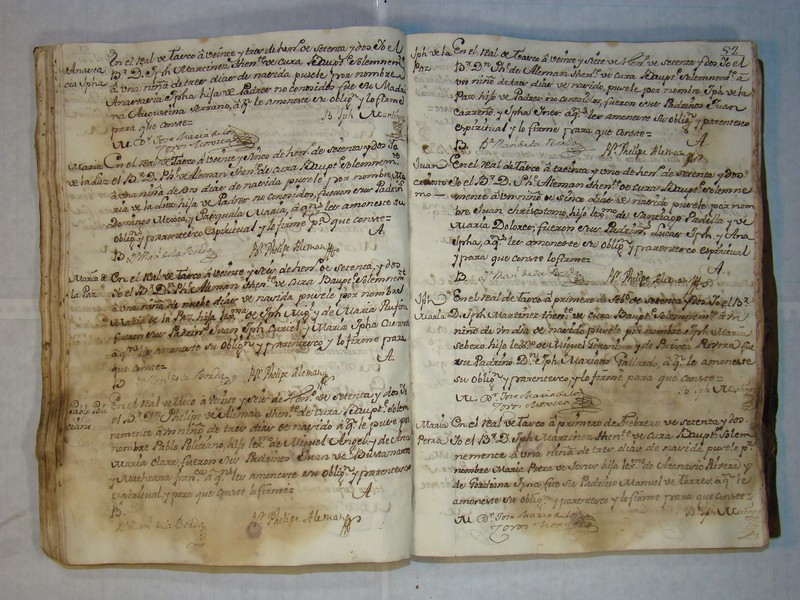 En el Real de Tasco â veinte y tres de hen.º de Setenta y dos Yo el
Anasta
cia Jpha
B.r D. Jph Martinez thenᵗᵉ de Cura Bauptᵉ Solemnemᵗᵉ
â una niña de tres dias de nacida pusele por nombre
Anastacia Jpha hija de Padres no conocidos fue su Madri
na Augustina Serrano, â qⁿ le amoneste su obligⁿ y lo firmé
para que conste=
B. Jph Martinez
M. D.ⁿ Jose Maria de los
Toros Moreica
Maria
de la Luz
En el Real de Tasco â veinte y sinco de hen.º de setenta y dos Yo
el B.r D. Ph.e Aleman thenᵗᵉ de Cura Bauptᵉ Solemnem
â una niña de dos dias de nacida pusele por nombre Ma
ria de la Luz hija de Padres no conosidos, fueron sus Padrin
Domingo Merota, y Pasquala Maria, â qⁿ les amoneste su
obligⁿ y parentesco espiritual y lo firme p.ª que conste=
A.
B. D.ⁿ Man.l de la Borda
B.r Phelipe Aleman
Maria de
la Paz
En el Real de Tasco â veinte y seis de hen.º de Setenta, y dos
Yo el B.r D. Ph.e Aleman thenᵗᵉ de Cura Bauptᵉ Solemnemᵗᵉ
â una niña de nuebe dias de nacida pusele por nombre
Maria de la Paz hija legᵐᵃ de Jph Mig.l y de Maria Rufina
fueron sus Padrinˢ Juan Jph Curiel y Maria Jpha
â qⁿˢ les amoneste su obligⁿ y parentesco y lo firme para
que conste=
A.
B. Man.l de la Borda
B.r Phelipe Aleman
Pablo Poli
ciano
En el Real de Tasco â veinte y seis de hen.º de setenta y dos Yo
el B.r D.ⁿ Philipe de Aleman thenᵗᵉ de Cura Bauptᵉ Solem
nemente â un niño de tres dias de nacido â qⁿ le puse por
nombre Pablo Policiano hijo legᵐᵒ de Miguel Angel, y de Ana
Maria Clara, fueron sus Padrinos Juan de Bustamante
y Matheana Fran.ca â qⁿˢ les amoneste su obligⁿ y parentesco
espiritual y para que conste lo firmé=
A
B.
D.ⁿ Man.l de la Borda
B.r Phelipe Aleman
52
Jph de la
Paz
En el Real de Tasco â veinte y siete de Hen.º de Setenta y dos Yo el
B.r D.ⁿ Ph.e de Aleman thenᵗᵉ de Cura Bauptᵉ Solemnemᵗᵉ â
un niño de tres dias de nacido pusele por nombre Jph de la
Paz hijo de Padres no conosidos, fueron sus Padrinos Juan
Carreño, y Jpha Ines, â qⁿˢ les amoneste su obligⁿ y parentesco
espiritual y lo firmé para que conste=
A.
B. D.ⁿ Man.l de la Borda
B.r Phelipe Aleman
Juan
Crisosto
mo —
En el Real de Tasco â treinta y uno de hen.º de setenta y dos
Yo el B.r D. Ph.e Aleman thenᵗᵉ de Cura Bauptᵉ Solemne
mente â un niño de sinco dias de nacido pusele por nom
bre Juan Chrisostomo hijo legᵐᵒ de Santiago Padilla y de
Maria Dolores, fueron sus Padrinˢ Lucas Jph, y Ana
Jpha, â qⁿˢ les amoneste su obligⁿ y parentesco espiritual
y para que conste lo firme=
A.
B. D.ⁿ Man.l de la Borda
B.r Phelipe Aleman
Jph
Maria
En el Real de Tasco â primero de Feb.º de setenta y dos Yo el B.r
D. Jph Martinez thenᵗᵉ de cura Bauptᵉ Solemnemᵗᵉ â un
niño de un dia de nacido pusele por nombre Jph Maria
Sebero hijo legᵐᵒ de Miguel Geronimo y de Rivera fue
su Padrino D.ⁿ Jph Mariano Gallardo, â qⁿ le amoneste
su obligⁿ y parentesco, y lo firmé para que conste=
B. Jph Martinez
M. D.ⁿ Jose Maria de los
Toros Moreica
Maria
Petra
En el Real de Tasco â primero de Febrero de setenta y dos
Yo el B.r D. Jph Martinez thenᵗᵉ de cura Bauptᵉ Solem
nemente â una niña de tres dias de nacida, pusele pʳ
nombre Maria Petra de Jesus hija legᵐᵃ de Atanacio Rivera y
de Ygnᵃ, fue su Padrino Manuel de Torres, â qⁿ le
amoneste su obligⁿ y parentesco y lo firme para que conste=
B. Jph Martinez
M. D.ⁿ Jose Maria de los
Toros Moreica